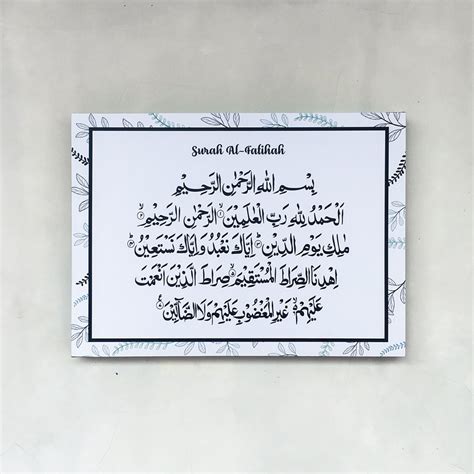 Surah Al-Fatihah
بِسْمِ اللهِ الرَّحْمٰنِ الرَّحِيْمِ
اَلْحَمْدُ لِلّٰهِ رَبِّ الْعٰلَمِيْنَ ۞ الرَّحْمٰنِ الرَّحِيْمِ ۞
مٰلِكِ يَوْمِ الدِّيْنِ ۞ اِيَّاكَ نَعْبُدُ وَاِيَّاكَ نَسْتَعِيْنُ ۞
اِهْدِنَا الصِّرَاطَ الْمُسْتَقِيْمَ ۞ صِرَاطَ الَّذِيْنَ اَنْعَمْتَ
عَلَيْهِمْ ۞ غَيْرِ الْمَغْضُوْبِ عَلَيْهِمْ وَلَا الضَّاۤلِّيْنَ ۞